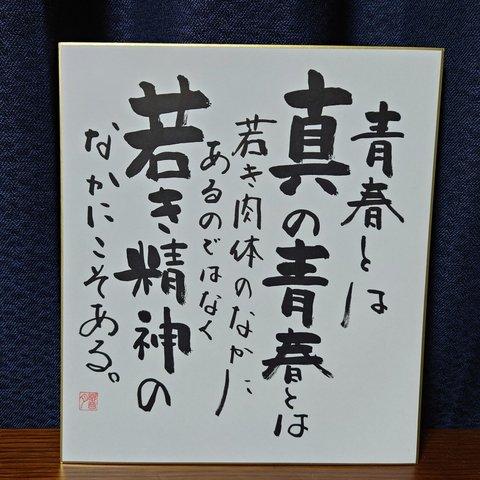 青春とは
真の青春とは
若き肉体のなかに
あるのではなく
若き精神の
なかにこそある。